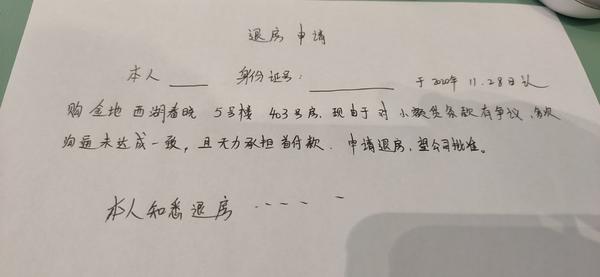 退房 申请
本人____ 身份证号:________ 于2020年11.28日认
购金地西湖春晓 5号楼 403号房.现由于对小数贷条款有争议,多次
沟通未达成一致,且无力承担首付款.申请退房,望公司批准。
本人知悉退房 ......